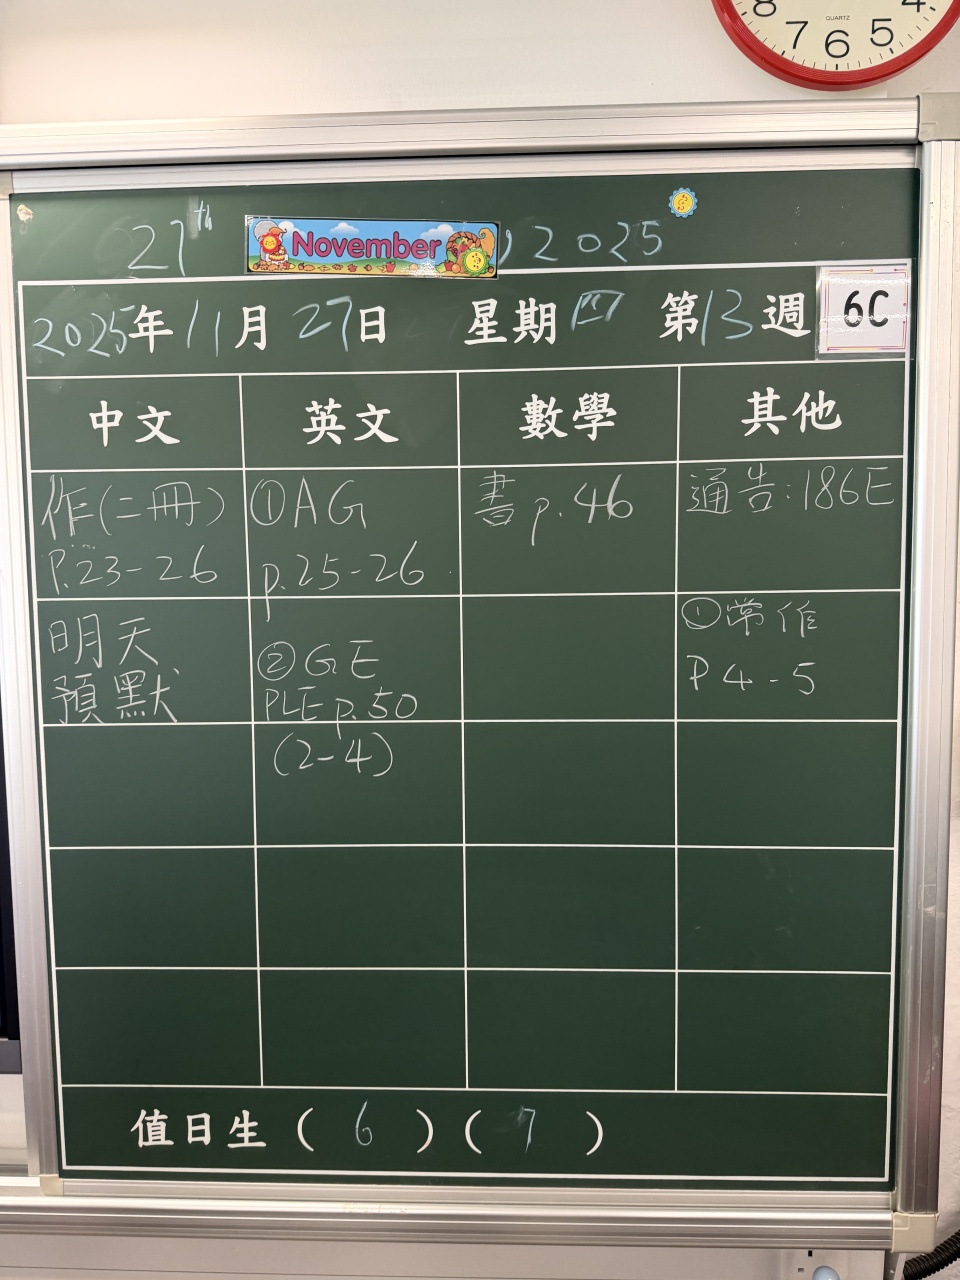 8 7 6 5 4
QUARTZ
27th November, 2025
2025年11月27日 星期四 第13週 6C
中文 英文 數學 其他
作(二冊)
P.23-26
①AG
p.25-26
書p.46
通告:186E
明天
預默
②GE
PLE p.50
(2-4)
①常作
P4-5
值日生(6)(7)